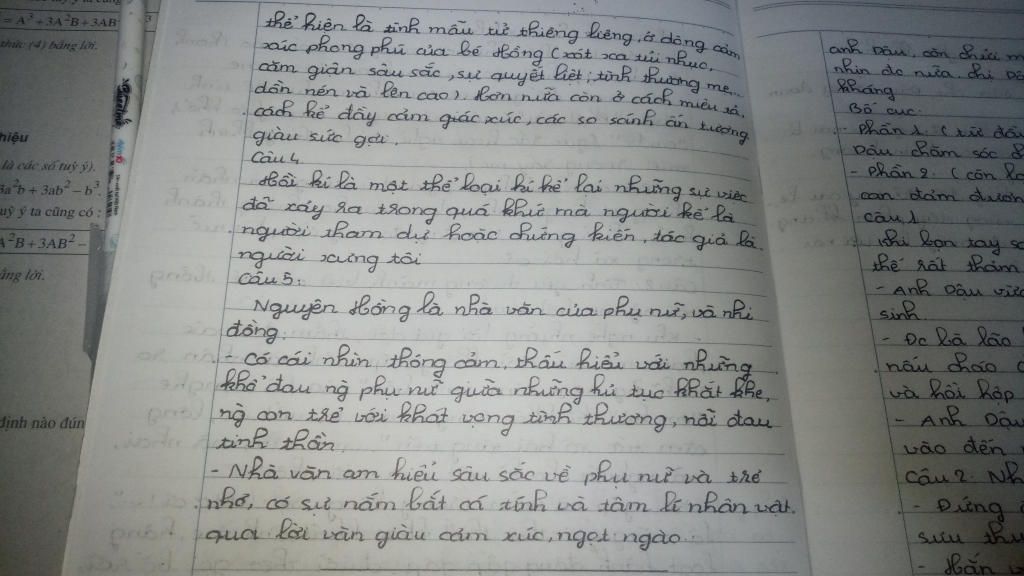 = A³ + 3A²B + 3AB
thức (4) bằng lời.
hiệu
là các số tuỳ ý).
3a²b + 3ab² − b³.
uỳ ý ta cũng có :
A²B + 3AB² −
ằng lời.
định nào đún
thể hiện là tình mẫu tử thiêng liêng, ở dòng cảm
xúc phong phú của bé Hồng (xót xa tủi nhục,
căm giận sâu sắc, sự quyết liệt; tình thương mẹ...
dồn nén và lên cao). Hơn nữa còn ở cách miêu tả,
cách kể đầy cảm giác xúc, các so sánh ấn tượng
giàu sức gợi.
Câu 4
Hồi kí là một thể loại kí kể lại những sự việc
đã xảy ra trong quá khứ mà người kể là
người tham dự hoặc chứng kiến, tác giả là
người xưng tôi
Câu 5:
Nguyên Hồng là nhà văn của phụ nữ, và nhi
đồng.
- Có cái nhìn thông cảm, thấu hiểu với những
khổ đau ng̀ phụ nữ giữa những hủ tục khắt khe,
ng̀ con trẻ với khát vọng tình thương, nỗi đau
tinh thần.
- Nhà văn am hiểu sâu sắc về phụ nữ và trẻ
nhỏ, có sự nắm bắt cá tính và tâm lí nhân vật.
qua lời văn giàu cảm xúc, ngọt ngào.
anh Dậu, còn
nhìn đc nữa. chị Dậ
kháng
Bố cục:
- Phần 1. (từ đầu
Dậu chăm sóc
- Phần 2. (còn lạ
can đảm đươn
câu 1
khi bọn tay sa
thế rất thảm
- Anh Dậu vừa
sinh.
- Đc bà lão
nấu cháo
và hồi hộp
- Anh Dậu
vào đến
Câu 2. Nh
- Đứng
sưu thu
- Hắn v